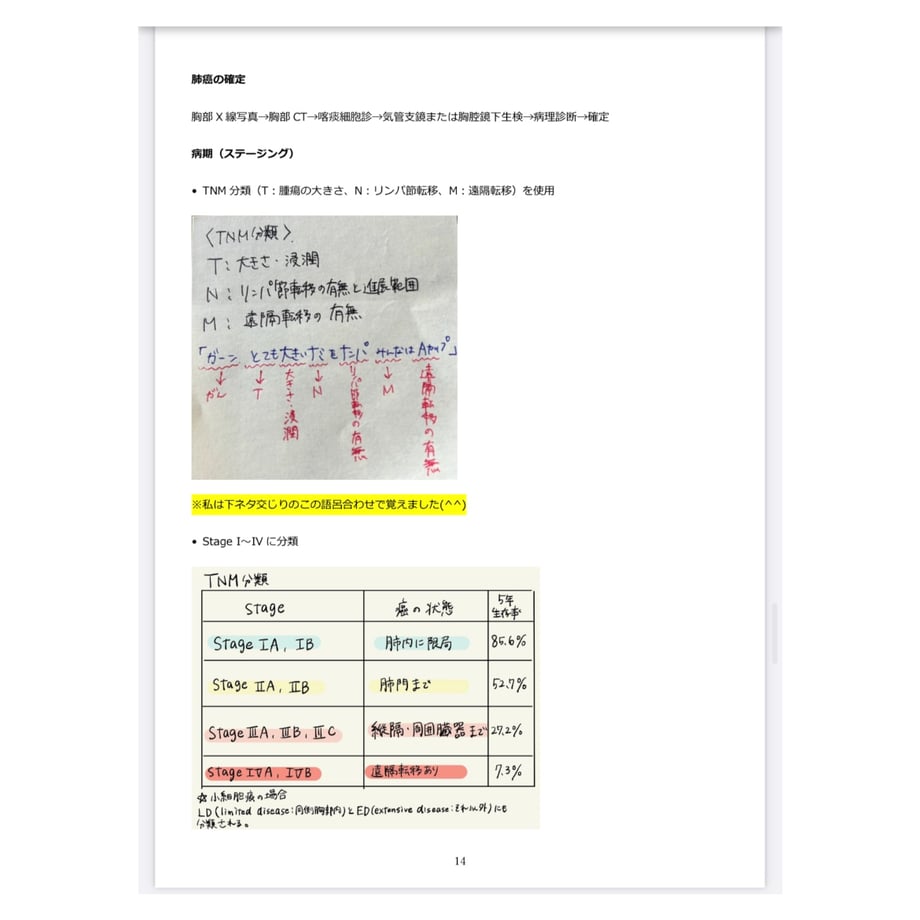 肺癌の確定
胸部 X 線写真→胸部 CT→喀痰細胞診→気管支鏡または胸腔鏡下生検→病理診断→確定
病期（ステージング）
• TNM 分類（T：腫瘍の大きさ、N：リンパ節転移、M：遠隔転移）を使用
〈TNM分類〉
T：大きさ・浸潤
N：リンパ節転移の有無と進展範囲
M：遠隔転移の有無
「ガーン とても大きいナミをナンパ みんなはAカップ」
↓ ↓ 大きさ・浸潤 ↓ リンパ節転移の有無 ↓ 遠隔転移の有無
がん T N M
※私は下ネタ交じりのこの語呂合わせで覚えました(^^)
• Stage I～IV に分類
TNM分類
Stage 癌の状態 5年生存率
Stage ⅠA, ⅠB 肺内に限局 85.6%
Stage ⅡA, ⅡB 肺門まで 52.7%
Stage ⅢA, ⅢB, ⅢC 縦隔・周囲臓器まで 27.2%
Stage ⅣA, ⅣB 遠隔転移あり 7.3%
☆小細胞癌の場合
LD(limited disease:同側胸郭内)とED(extensive disease:それ以外)にも
分類される。
14